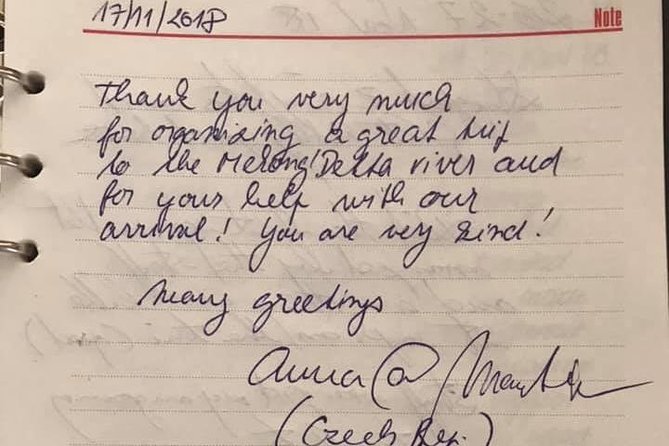 17/11/2018
Note
Thank you very much
for organizing a great trip
to the Mekong Delta river and
for your help with our
arrival! You are very kind!
Many greetings
Anna
(Czech Rep.)